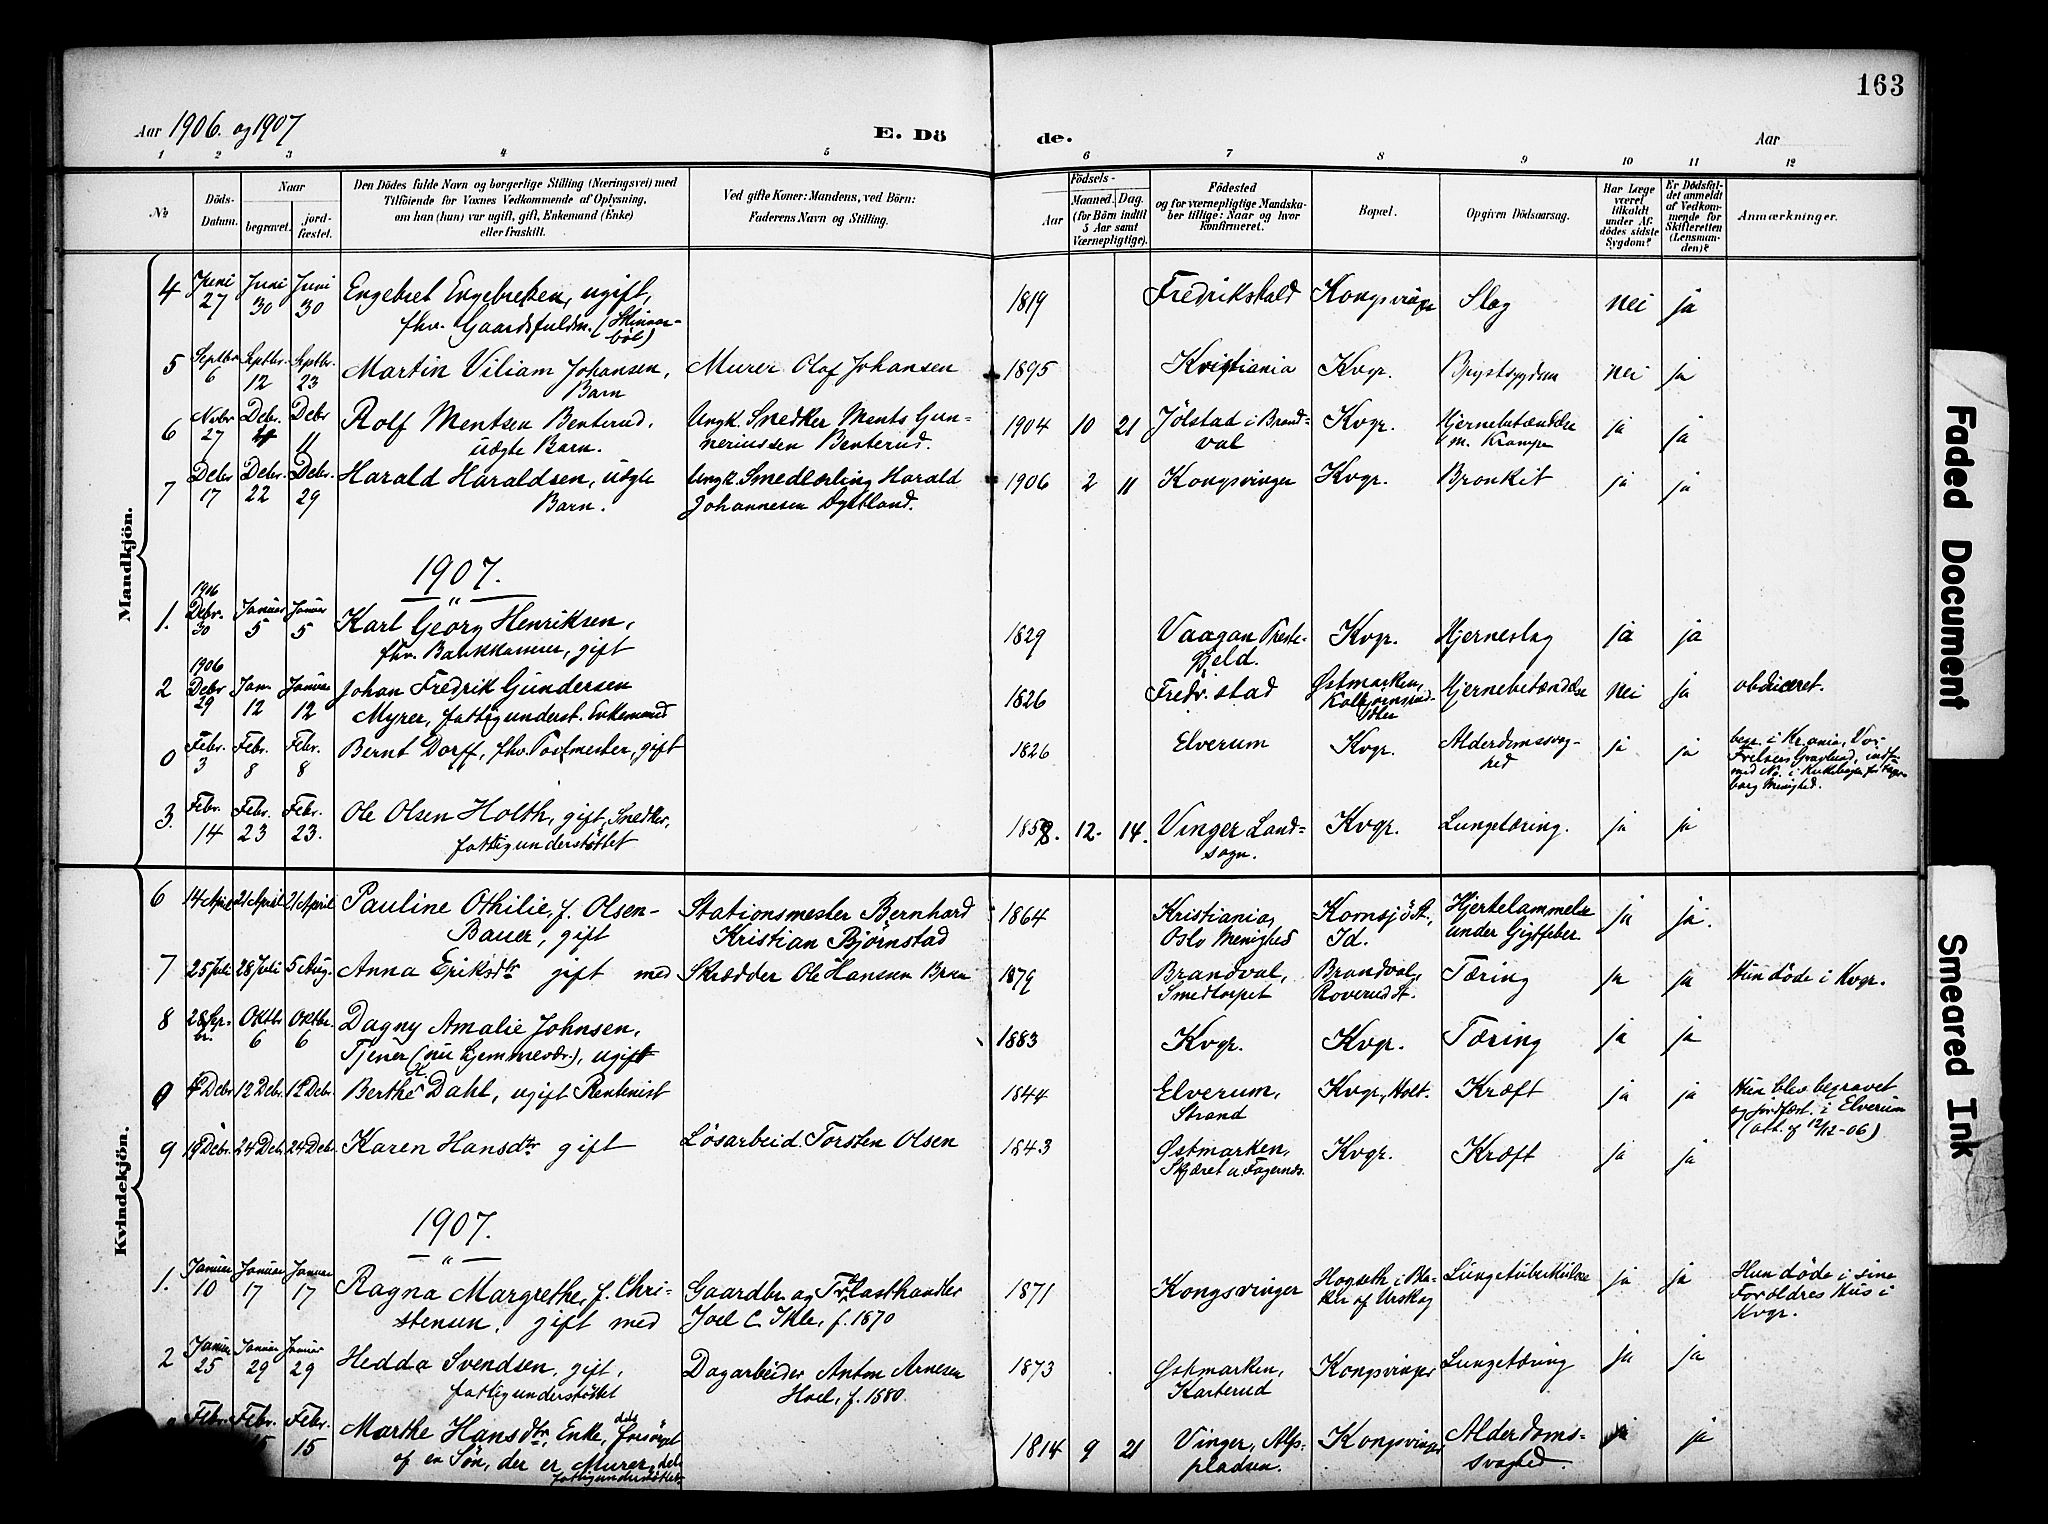 163
Aar 1906. og 1907
E. Dö
de.
Aar
1 2 3 4 5 6 7 8 9 10 11 12
№
Döds-
Datum.
Naar
begravet.
jord-
fæstet.
Den Dödes fulde Navn og borgerlige Stilling (Næringsvei) med
Tilföiende for Voxnes Vedkommende af Oplysning,
om han (hun) var ugift, gift, Enkemand (Enke)
eller fraskilt.
Ved gifte Koner: Mandens, ved Börn:
Faderens Navn og Stilling.
Födsels-
Aar
Maaned. Dag.
(for Börn indtil
5 Aar samt
Værnepligtige).
Födested
og for værnepligtige Mandska-
ber tillige: Naar og hvor
konfirmeret.
Bopæl.
Opgiven Dödsaarsag.
Har Læge
været
tilkaldt
under Af-
dödes sidste
Sygdom?
Er Dödsfal-
det anmeldt
af Vedkom-
mende for
Skifteretten
(Lensman-
den)?
Anmærkninger.
Mandkjön.
4 Juni 27 Juni 30 Juni 30 Engebret Engebretsen, ugift, 1819 Fredrikshald Kongsvinger Slag nei ja
fhv. Gaardsfuldm. (Skinnar-
böl)
5 Septbr 6 Septbr. 12 Septbr. 23 Martin Viliam Johansen, Murer Olaf Johansen 1895 Kristiania Kvgr. Brystsygdom nei ja
Barn
6 Novbr 27 Debr. 4 Debr 11 Rolf Mentsen Benterud, Ungk. Snedker Ments Gun- 1904 10 21 Jölstad i Brand- Kvgr. Hjernebetændelse ja ja
uægte Barn. neriussen Benterud. val m. Krampe
7 Debr 17 Debr. 22 Debr. 29 Harald Haraldsen, uægte Ungk. Smedlærling Harald 1906 2 11 Kongsvinger Kvgr. Bronkit ja ja
Barn. Johannesen Dystland.
1907.
1. 1906 Debr. 30 Januar 5 Januar 5 Karl Georg Henriksen, 1829 Vaagan Preste- Kvgr. Hjerneslag ja ja
fhv. Bankkasserer, gift gjeld.
2 1906 Debr 29 Jan. 12 Januar 12 Johan Fredrik Gundersen 1826 Fredr. stad Østmarken, Hjernebetændelse nei ja obduceret.
Myrer, fattigunderst. Enkemand
0 Febr. 3 Febr. 8 Febr. 8 Bernt Dorff, fhv. Postmester, gift 1826 Elverum Kvgr. Alderdomssvag- ja ja begr. i Kr.ania, Vor
hed Frelsers Gravlund, indf.
med No. i Kirkebogen for
Menighed.
3. Febr. 14 Febr. 23 Febr. 23. Ole Olsen Holth, gift, Snedker, 1858. 12. 14. Vinger Land- Kvgr. Lungetæring. ja ja
fattigunderstöttet sogn.
Kvindekjön.
6 14 April 21 April 21 April Pauline Othilie, f. Olsen- Stationsmester Bernhard 1864 Kristiania, Kornsjö St., Hjertelammelse ja ja.
Bauer, gift Kristian Björnstad Oslo Menighed Id. under Gigtfeber
7 25 Juli 28 Juli 5 Aug. Anna Eriksdtr gift med Skrædder Ole Hansen 1879 Brandval, Brandval, Tæring ja ja Hun döde i Kvgr.
Smedtorpet Roverud St.
8 28 Sp. br. Oktbr 6 Oktbr. 6 Dagny Amalie Johnsen, 1883 Kvgr. Kvgr. Tæring ja ja
Tjener (nu hjemmevær.), ugift
0 Debr 12 Debr. 12 Debr. Berthe H. Dahl, ugift Rentenist 1844 Elverum, Kvgr, Holt. Kræft ja ja Hun blev begravet
Strand og jordfæst. i Elverum
(att. af 12/12-06)
9 19 Debr. 24 Debr. 24 Debr. Karen Hansdtr gift Lösarbeid. Torsten Olsen 1843 Østmarken, Kvgr. Kræft ja ja
Skjæret u. Fagernes.
1907.
1. Januar 10 Januar 17 Januar 17 Ragna Margrethe, f. Chri- Gaardbr. og Trælasthandler 1871 Kongsvinger Hogseth i Bla- Lungetuberkulose ja ja Hun döde i sine
stensen, gift med Joel C. Ihle, f. 1870 ker af Urskog Foreldres Hus i
Kvgr.
2 Januar 25 Januar 29 Januar 29 Hedda Svendsen, gift, Dagarbeider Anton Arnesen 1873 Østmarken, Kongsvinger Lungetæring ja ja
fattigunderstöttet Hoel, f. 1880. Karterud
Febr. Febr. Febr. 15 Marthe Hansdtr, Enke, dels forsörget 1814 9 21 Vinger, Kongsvinger Alderdoms- ja ja
af en Sön, der er Murer, dels pladsen. svaghed.
fattigunderstöttet.
Faded Document
Smeared Ink